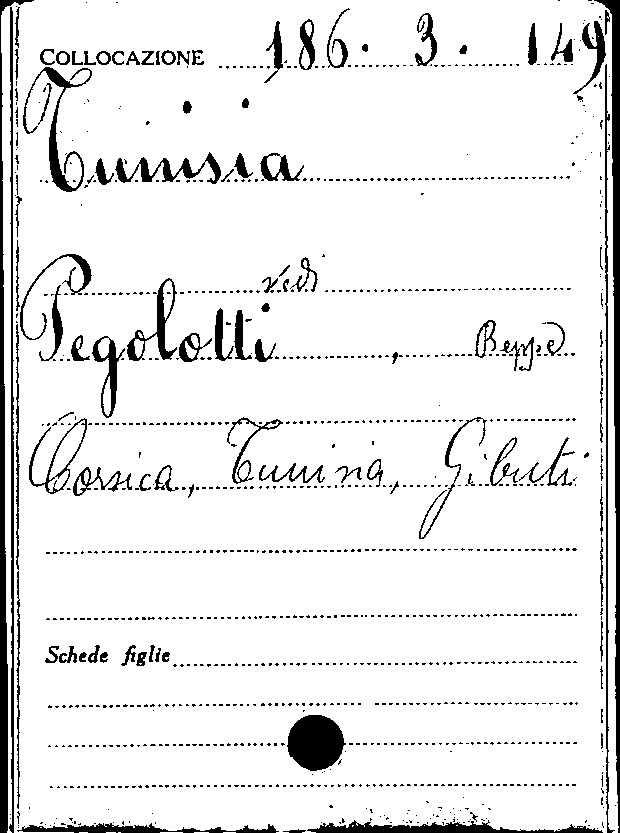 COLLOCAZIONE 186. 3. 149
Tunisia
vedi
Pegolotti, Beppe
Corsica, Tunisia, Gibuti
Schede figlie